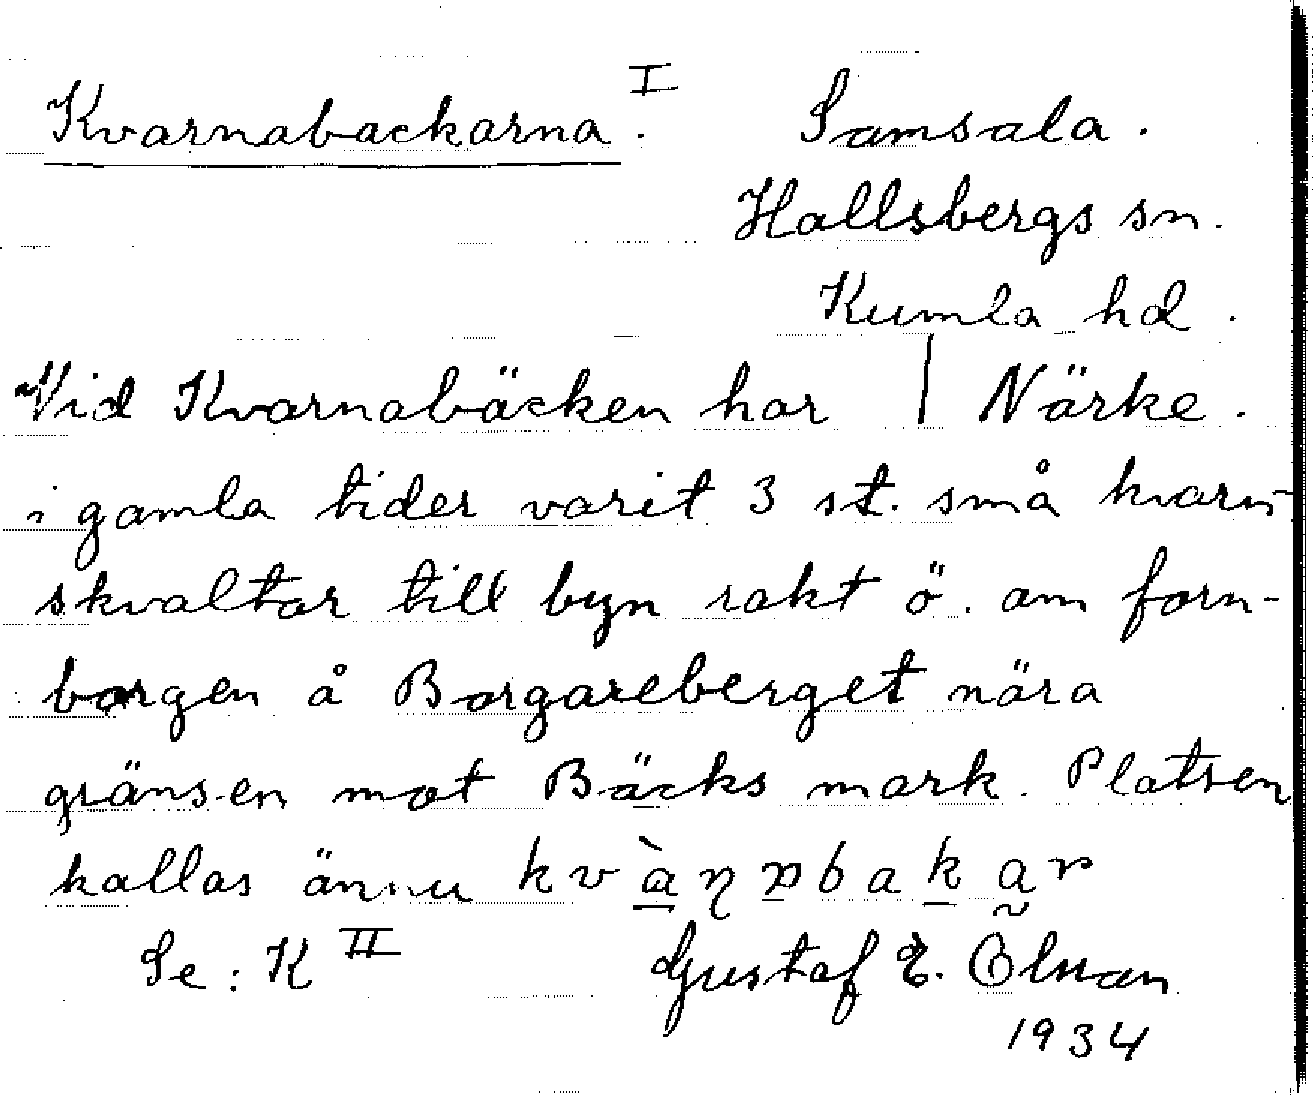 Kvarnabackarna I. Samsala.
Hallsbergs sn.
Kumla hd.
Vid Kvarnabäcken har | Närke.
i gamla tider varit 3 st. små kvarn-
skvaltar till byn rakt ö. om forn-
borgen å Borgareberget nära
gränsen mot Bäcks mark. Platsen
kallas ännu
Se: K II Gustaf E. Olman
1934